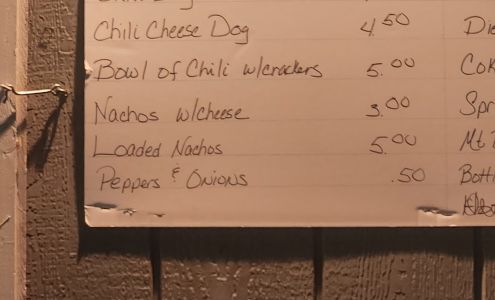 Chili Cheese Dog 4.50
Bowl of Chili w/crackers 5.00
Nachos w/cheese 3.00
Loaded Nachos 5.00
Peppers & Onions .50
Die
Cok
Spr
Mt
Bott